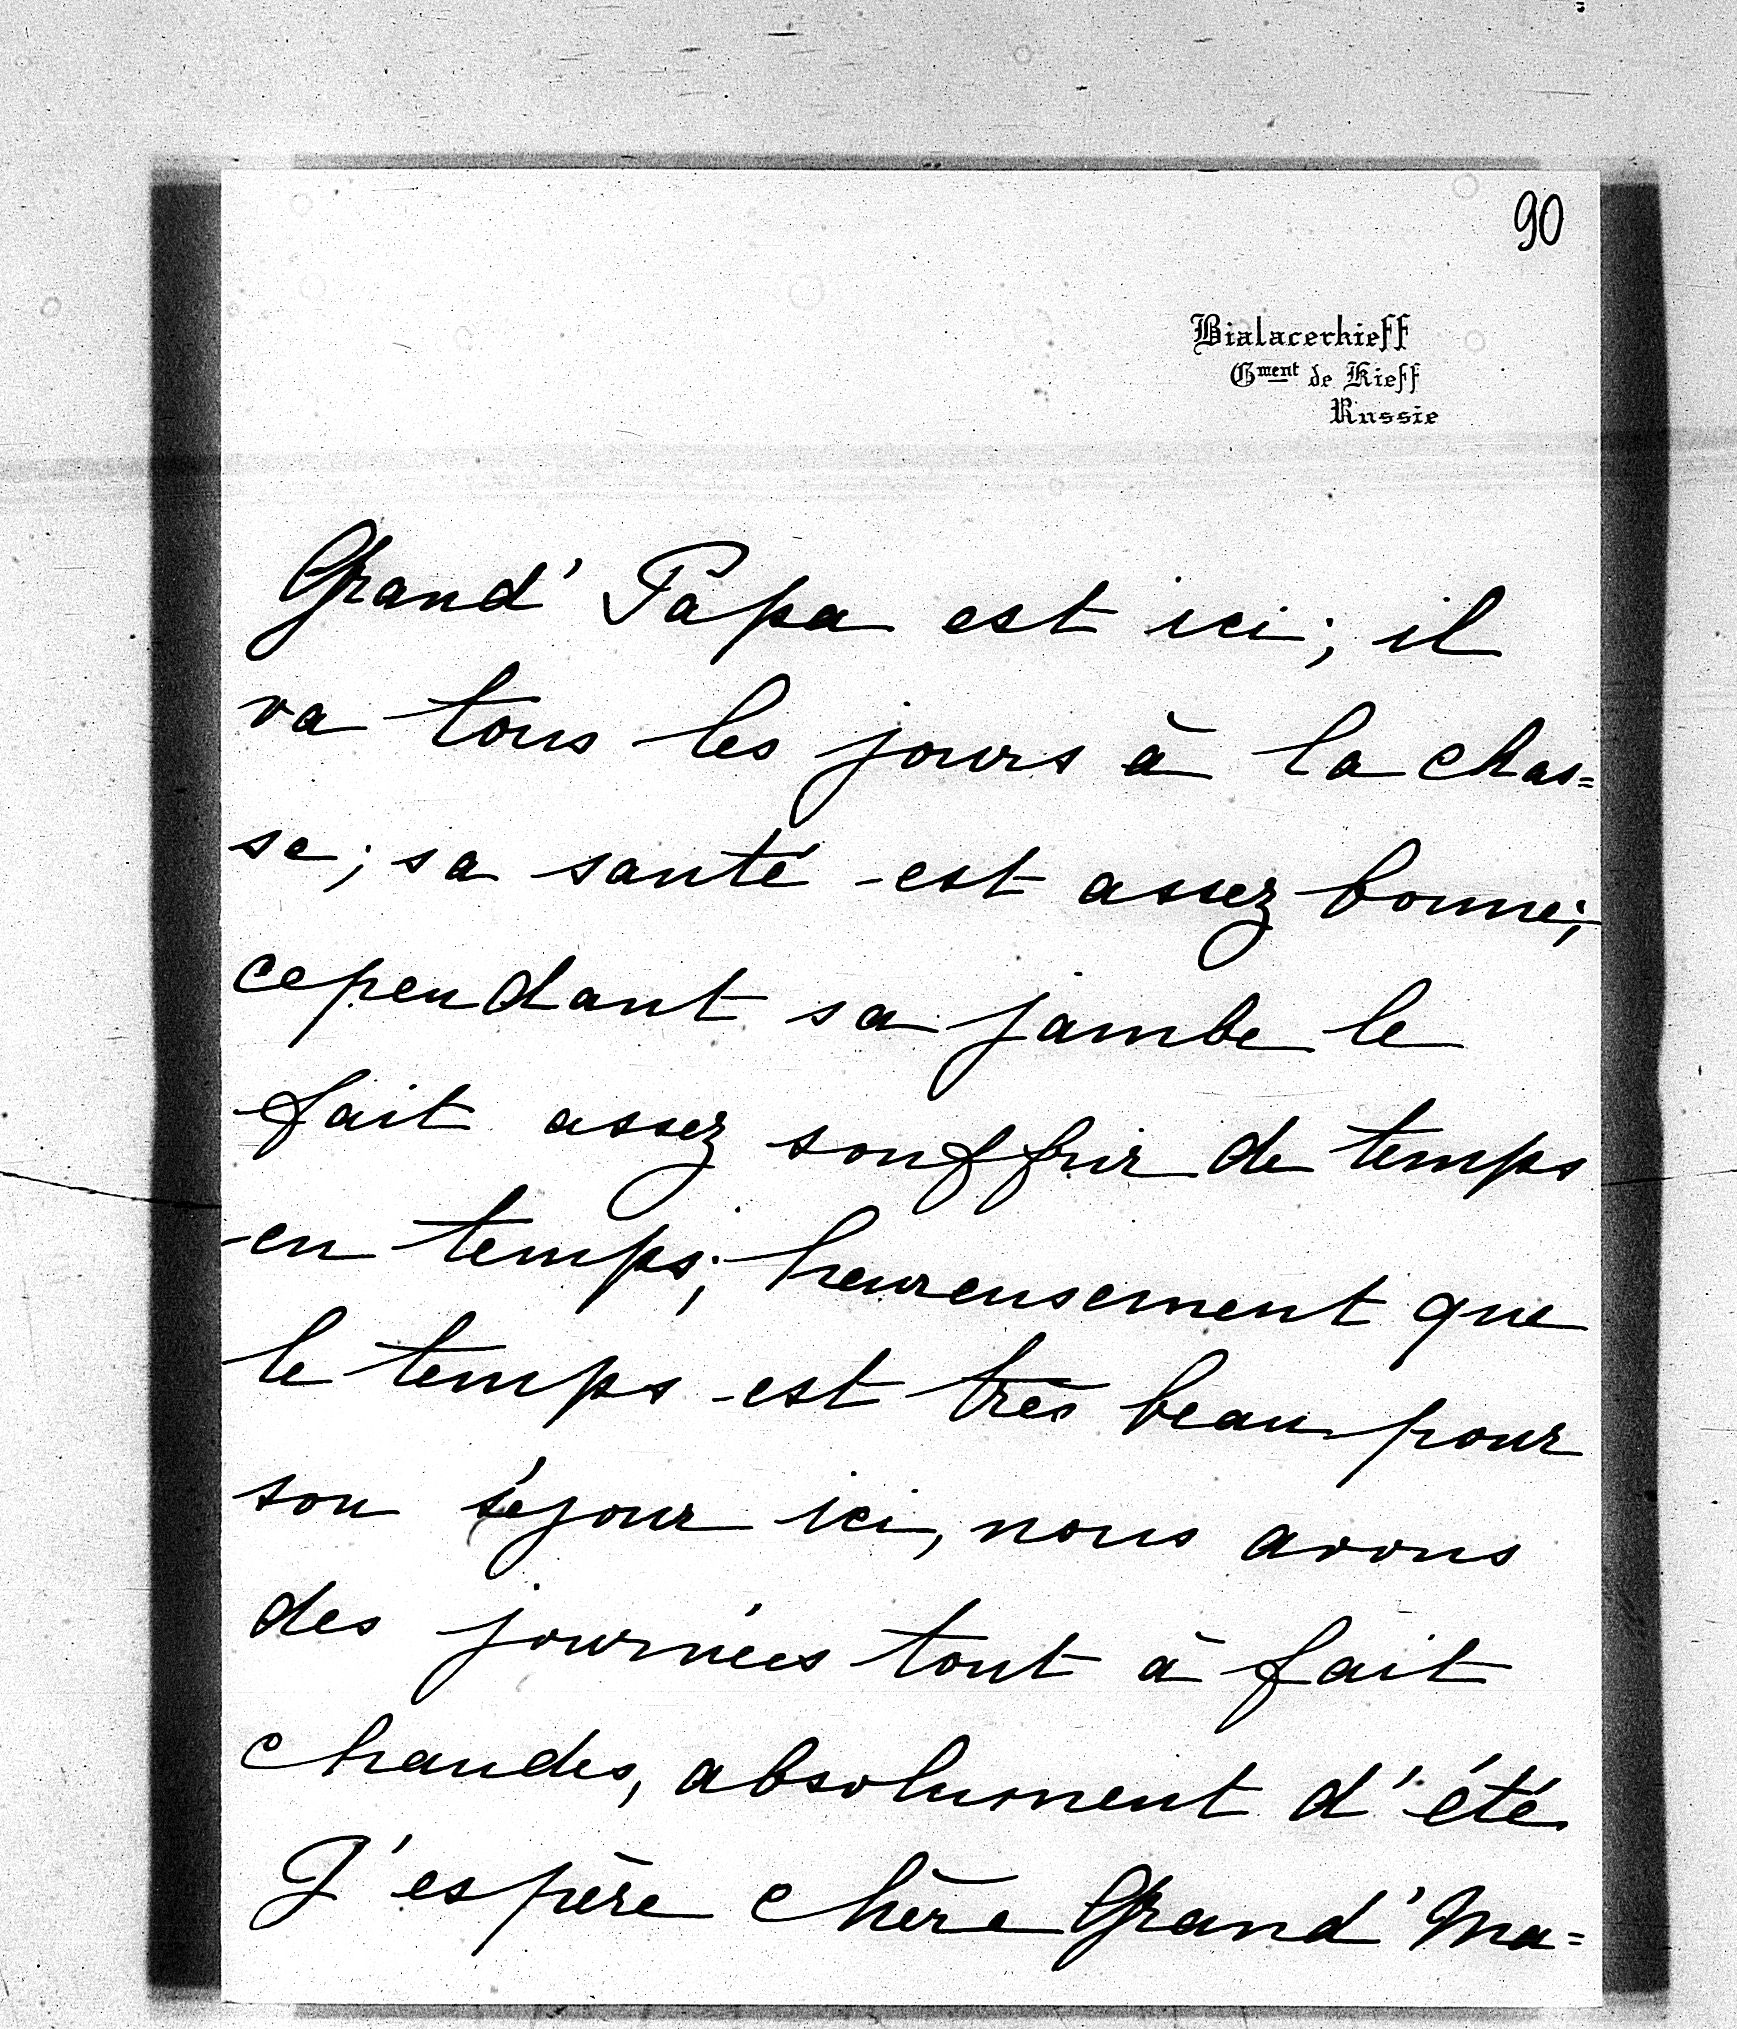 90
Bialacerkieff
Gment de Kieff
Russie
Grand' Papa est ici; il
va tous les jours à la chas=
se; sa santé est assez bonne;
cependant sa jambe le
fait assez souffrir de temps
en temps; heureusement que
le temps est très beau pour
son séjour ici, nous avons
des journées tout à fait
chaudes, absolument d'été
J'espère chère Grand'Ma=